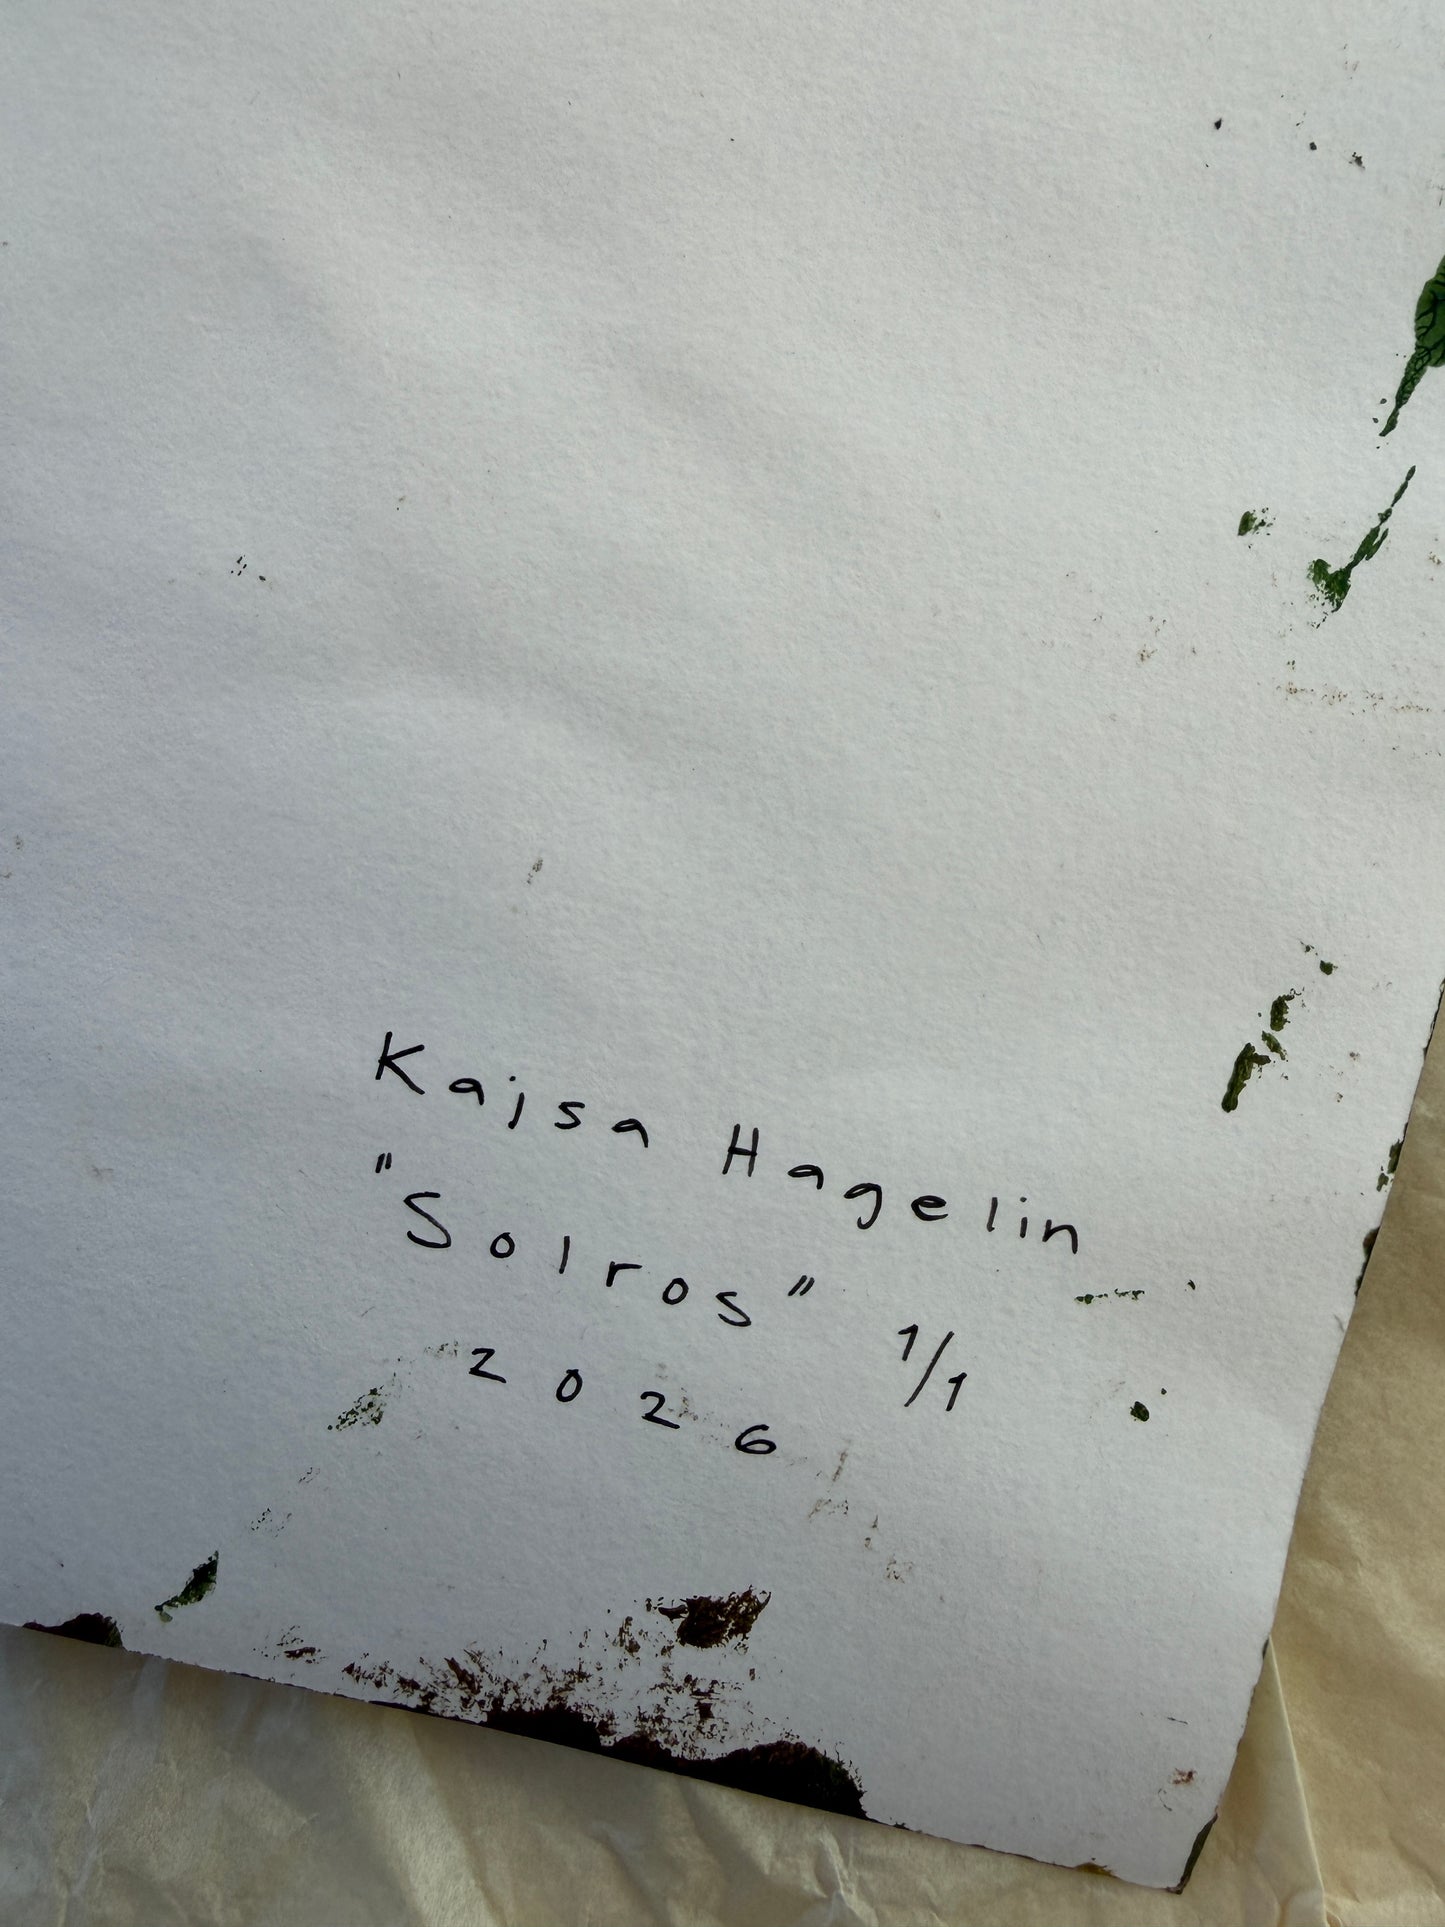 Kajsa Hagelin
"Solros" 1/1
2026